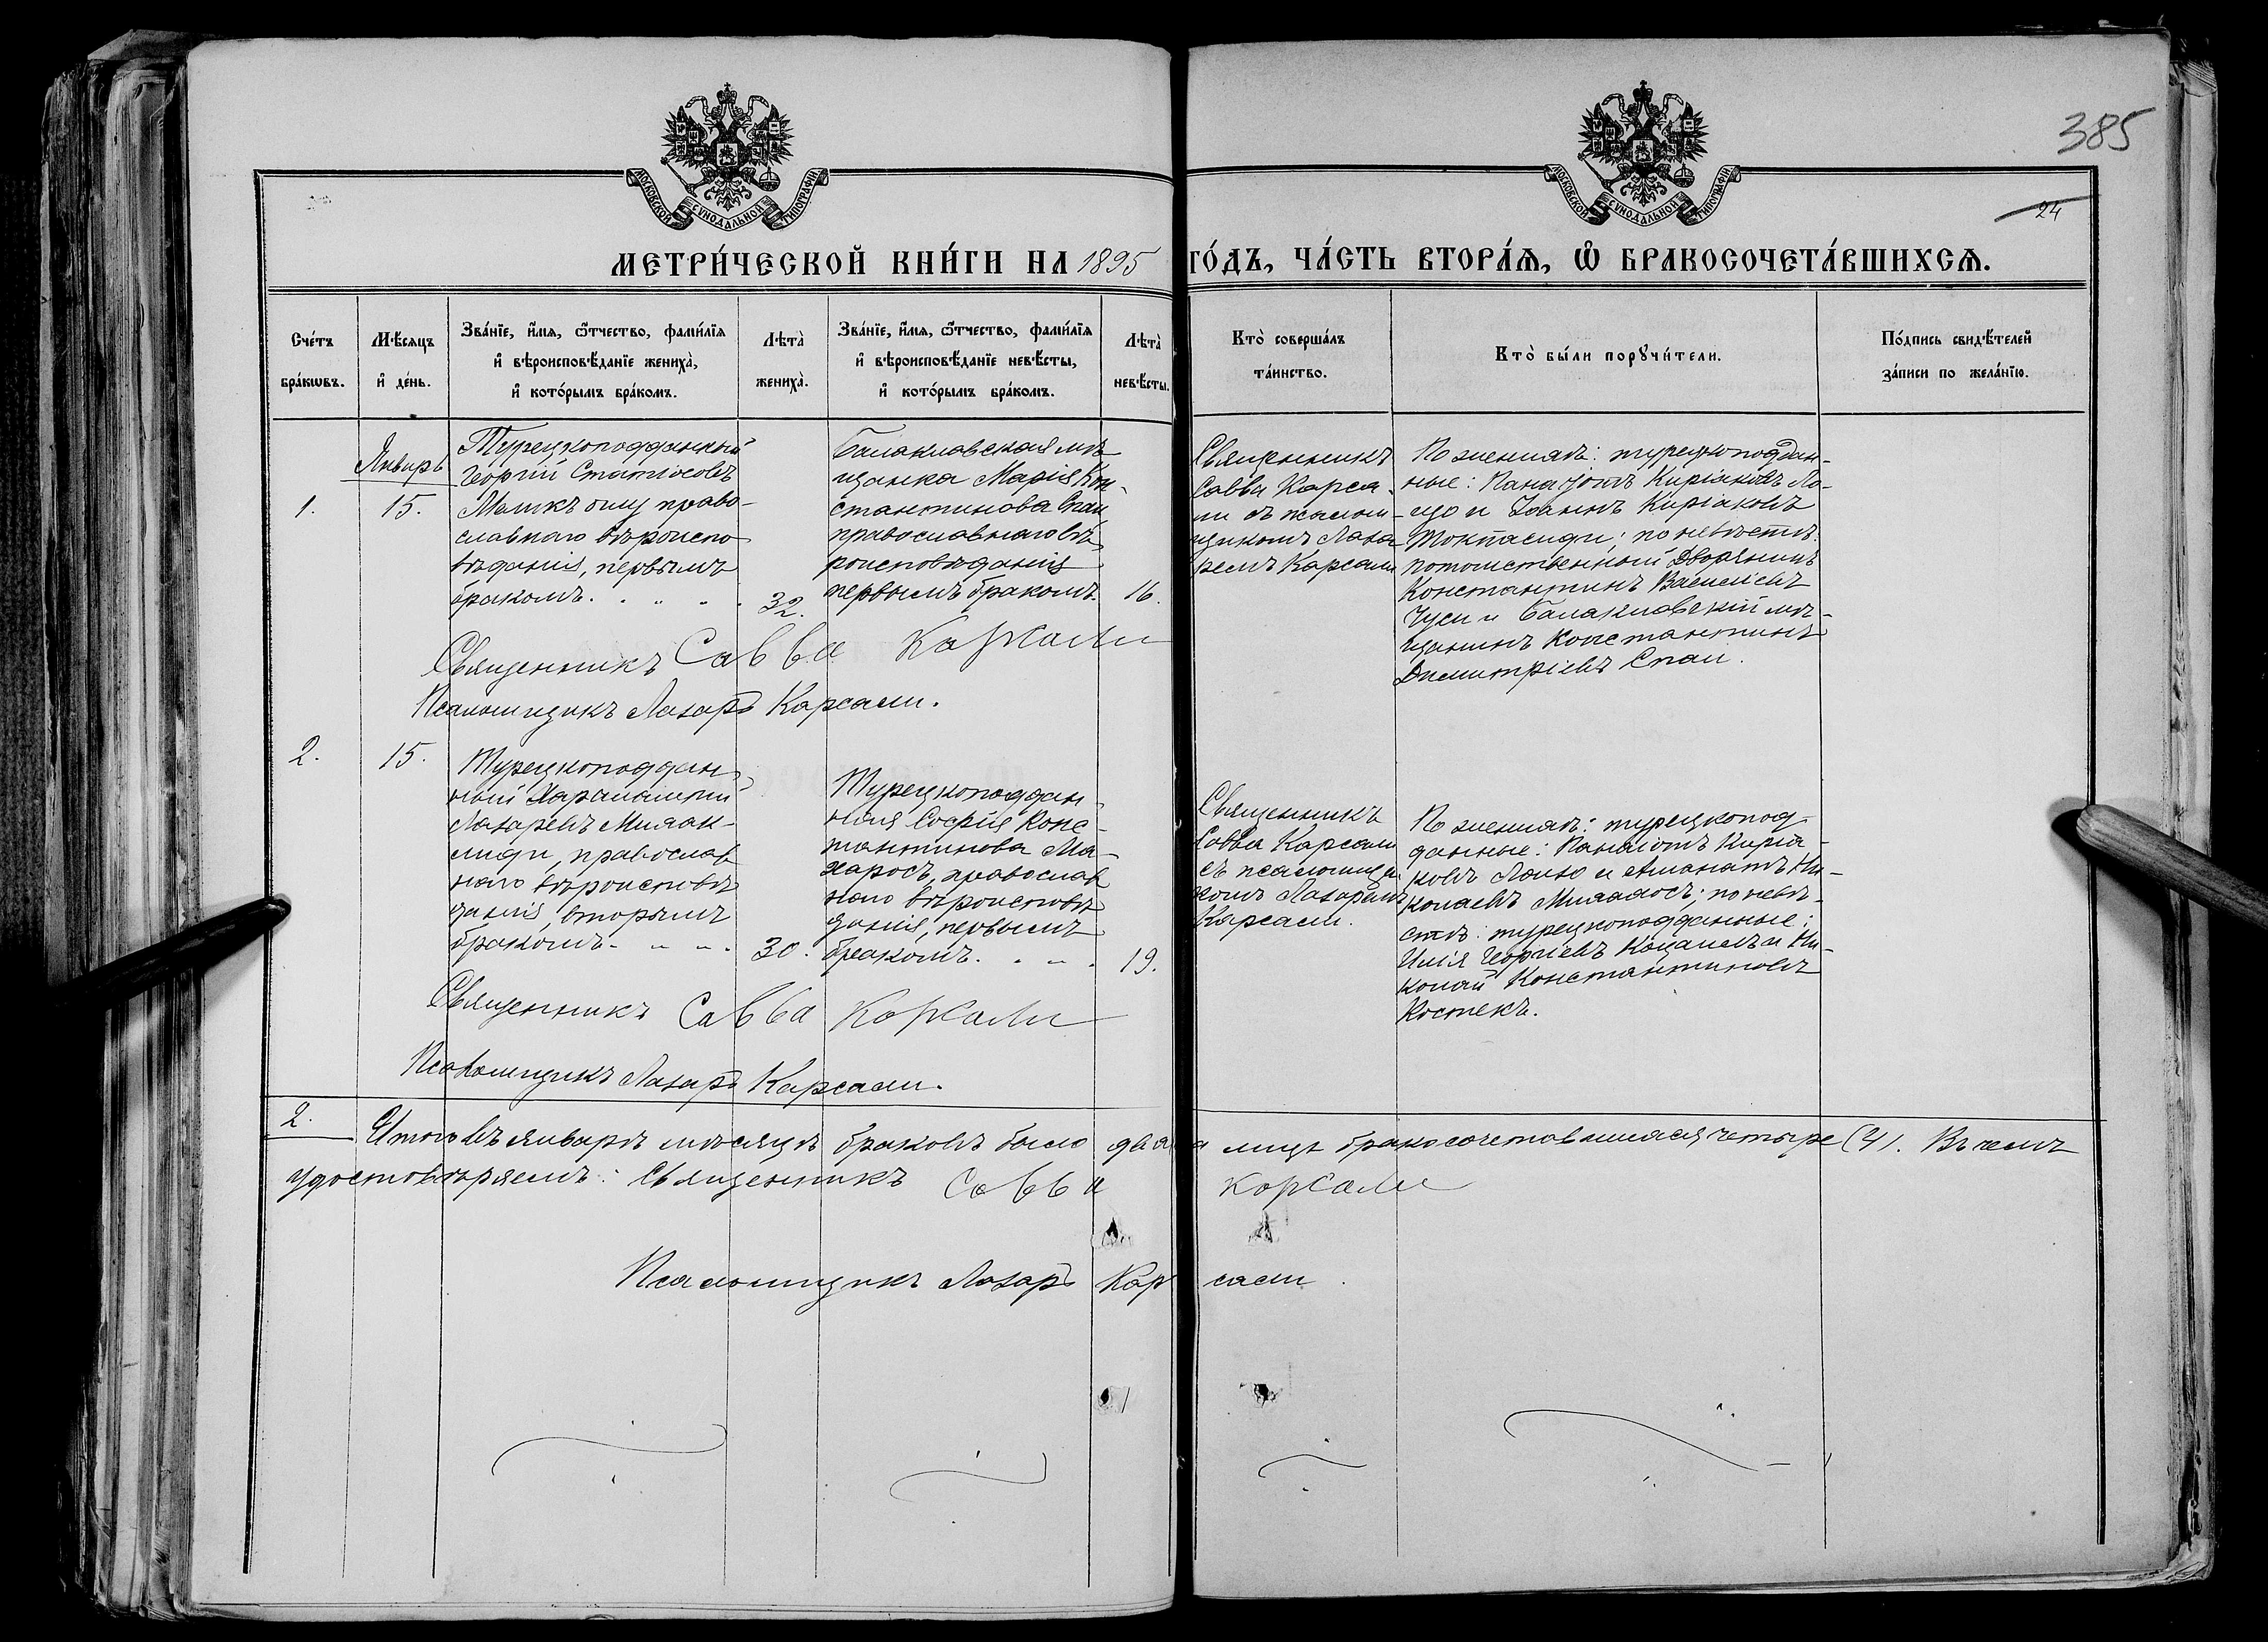 385
24
МОСКОВСКОЙ СѴНОДАЛЬНОЙ ТИПОГРАФІИ
МОСКОВСКОЙ СѴНОДАЛЬНОЙ ТИПОГРАФІИ
МЕТРИ́ЧЕСКОЙ КНИ́ГИ НА 1895 ГО́ДЪ, ЧА́СТЬ ВТОРА́Ѧ, Ѽ БРАКОСОЧЕТА́ВШИХСѦ.
Сче́тъ
бра́кѡвъ.
Мѣ́сѧцъ
и҆ де́нь.
Зва́нїе, и҆́мѧ, ѻ҆́тчество, фами́лїѧ
и҆ вѣроисповѣ́данїе жениха̀,
и҆ кото́рымъ бра́комъ.
Лѣта̀
жениха̀.
Зва́нїе, и҆́мѧ, ѻ҆́тчество, фами́лїѧ
и҆ вѣроисповѣ́данїе невѣ́сты,
и҆ кото́рымъ бра́комъ.
Лѣта̀
невѣ́сты.
Кто̀ соверша́лъ
та́инство.
Кто̀ бы́ли порꙋчи́тели.
По́дпись свидѣ́телей
за́писи по жела́нїю.
1.
Январь
15.
Турецкоподданный
Георгій Статіосовъ
право-
славнаго вѣроиспо
вѣданія, первымъ
бракомъ.
32.
Балаклавская мѣ
щанка Марія Кон-
стантинова Спаи
православнаго вѣ
роисповѣданія
первымъ бракомъ.
16.
Священникъ
Савва Карса-
ли съ псаломъ-
щикомъ Лаза
ремъ Карсали
По женихѣ: турецкоподдан-
ные: Панаіотъ Киріаковъ Ло-
цо и Іоаннъ Киріаковъ
Токпасиди; по невѣстѣ:
потомственный Дворянинъ
Константинъ Васильевъ
Чуси и Балаклавскій мѣ-
щанинъ Константинъ
Димитріевъ Спаи.
Священникъ Савва Карсали
Псаломщикъ Лазарь Карсали.
2.
15.
Турецкоподдан-
ный Харалампій
Лазаревъ
лиди, православ
наго вѣроисповѣ
данія, вторымъ
бракомъ.
30.
Турецкоподдан-
ная Софія Конс-
тантинова Ма-
харосъ, православ
наго вѣроисповѣ
данія, первымъ
бракомъ.
19.
Священникъ
Савва Карсали
съ псаломщи
комъ Лазаремъ
Карсали.
По женихѣ: турецкопод-
данные: Панаіотъ Киріа-
ковъ и Ни-
колаевъ по невѣ-
стѣ: турецкоподданные:
Илія Георгіевъ и Ни-
колай Константиновъ
Костекъ.
Священникъ Савва Карсали
Псаломщикъ Лазарь Карсали.
2. Итого въ январѣ мѣсяцѣ браковъ было два а лицъ бракосочетавшихся четыре (4). Въ чемъ
удостовѣряемъ: Священникъ Савва Карсали
Псаломщикъ Лазарь Карсали.